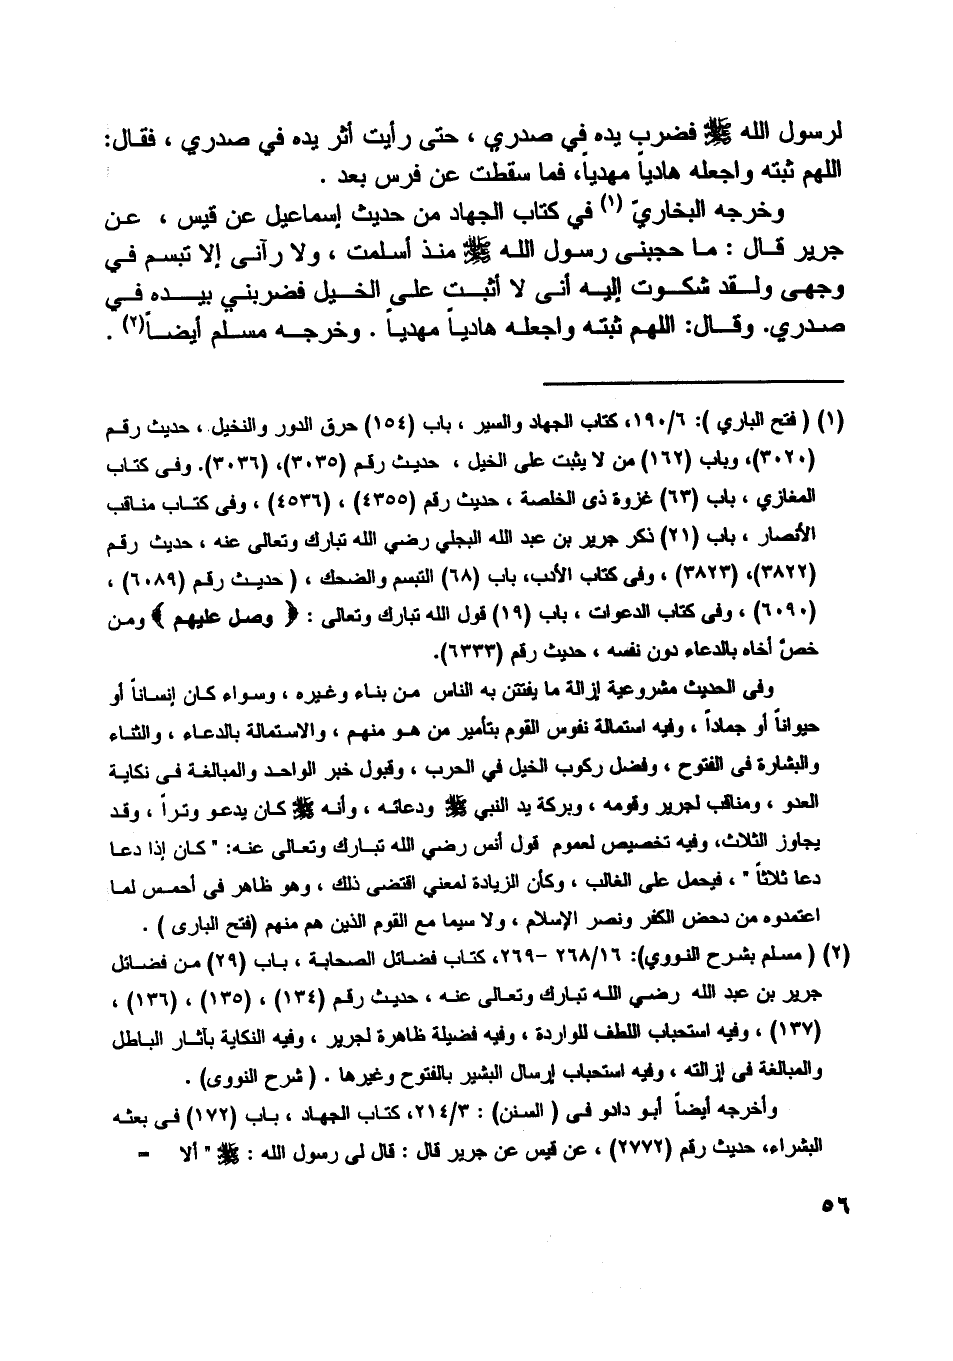 لرسول الله ﷺ فضرب يده في صدري ، حتى رأيت أثر يده في صدري ، فقال:
اللهم ثبته واجعله هادياً مهدياً، فما سقطت عن فرس بعد .
وخرجه البخاريّ (١) في كتاب الجهاد من حديث إسماعيل عن قيس ، عن
جرير قال : ما حجبنى رسول الله ﷺ منذ أسلمت ، ولا رآنى إلا تبسم في
وجهى ولقد شكوت إليه أنى لا أثبت على الخيل فضربني بيده في
صدري. وقال: اللهم ثبته واجعله هادياً مهدياً . وخرجه مسلم أيضاً(٢) .
(١) ( فتح الباري ): ١٩٠/٦، كتاب الجهاد والسير ، باب (١٥٤) حرق الدور والنخيل ، حديث رقم
(٣٠٢٠)، وباب (١٦٢) من لا يثبت على الخيل ، حديث رقم (٣٠٣٥)، (٣٠٣٦). وفى كتاب
المغازي ، باب (٦٣) غزوة ذى الخلصة ، حديث رقم (٤٣٥٥) ، (٤٥٣٦) ، وفى كتاب مناقب
الأنصار ، باب (٢١) ذكر جرير بن عبد الله البجلي رضي الله تبارك وتعالى عنه ، حديث رقم
(٣٨٢٢)، (٣٨٢٣) ، وفى كتاب الأدب، باب (٦٨) التبسم والضحك ، ( حديث رقم (٦٠٨٩) ،
(٦٠٩٠) ، وفى كتاب الدعوات ، باب (١٩) قول الله تبارك وتعالى : ﴿ وصل عليهم ﴾ ومن
خصّ أخاه بالدعاء دون نفسه ، حديث رقم (٦٣٣٣).
وفى الحديث مشروعية إزالة ما يفتتن به الناس من بناء وغيره ، وسواء كان إنساناً أو
حيواناً أو جماداً ، وفيه استمالة نفوس القوم بتأمير من هو منهم ، والاستمالة بالدعاء ، والثناء
والبشارة فى الفتوح ، وفضل ركوب الخيل في الحرب ، وقبول خبر الواحد والمبالغة فى نكاية
العدو ، ومناقب لجرير وقومه ، وبركة يد النبي ﷺ ودعائه ، وأنه ﷺ كان يدعو وتراً ، وقد
يجاوز الثلاث، وفيه تخصيص لعموم قول أنس رضي الله تبارك وتعالى عنه: " كان إذا دعا
دعا ثلاثاً " ، فيحمل على الغالب ، وكأن الزيادة لمعني اقتضى ذلك ، وهو ظاهر فى أحمس لما
اعتمدوه من دحض الكفر ونصر الإسلام ، ولا سيما مع القوم الذين هم منهم (فتح البارى ) .
(٢) ( مسلم بشرح النووي): ٢٦٨/١٦ -٢٦٩، كتاب فضائل الصحابة ، باب (٢٩) من فضائل
جرير بن عبد الله رضي الله تبارك وتعالى عنه ، حديث رقم (١٣٤) ، (١٣٥) ، (١٣٦) ،
(١٣٧) ، وفيه استحباب اللطف للواردة ، وفيه فضيلة ظاهرة لجرير ، وفيه النكاية بآثار الباطل
والمبالغة فى إزالته ، وفيه استحباب إرسال البشير بالفتوح وغيرها . ( شرح النووى) .
وأخرجه أيضاً أبو دادو فى ( السنن) : ٢١٤/٣، كتاب الجهاد ، باب (١٧٢) فى بعثه
البشراء، حديث رقم (٢٧٧٢) ، عن قيس عن جرير قال : قال لى رسول الله : ﷺ " ألا =
٥٦